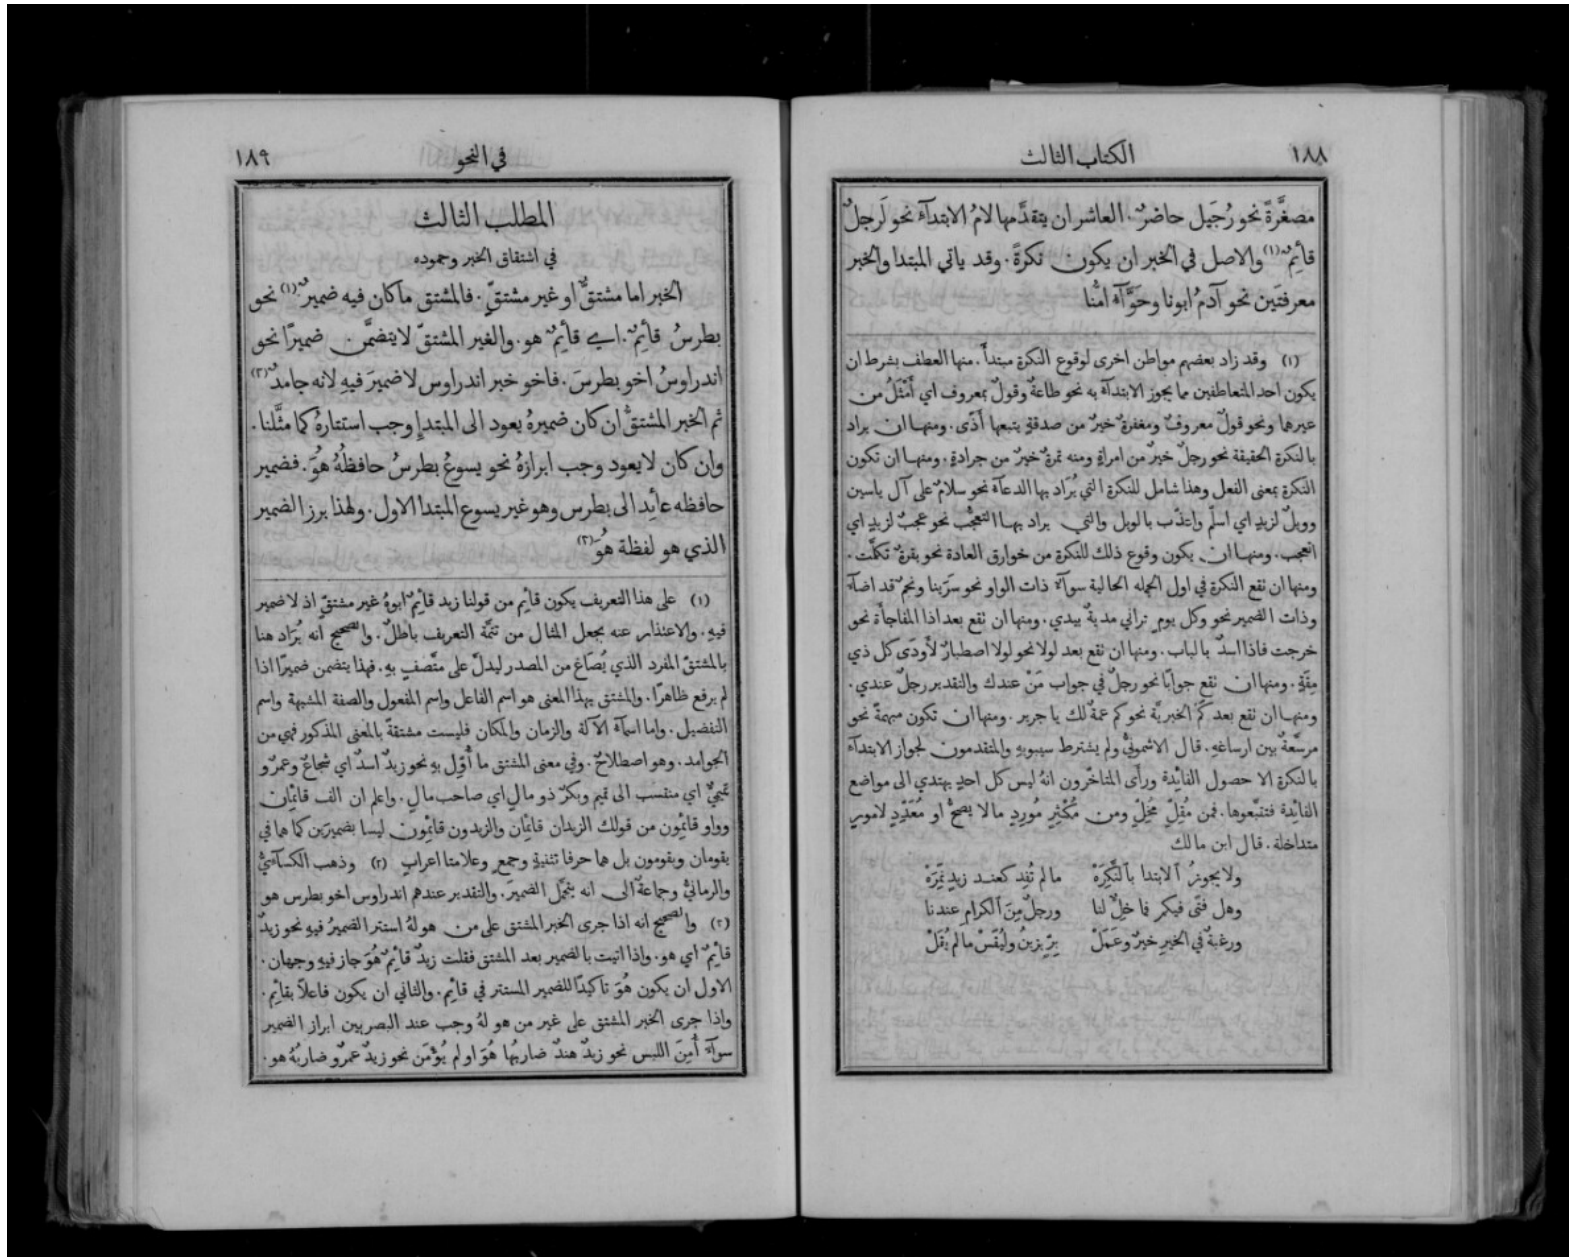 ١٨٨
الكتاب الثالث
مصغَّرةً نحو رُجَيل حاضرٌ. العاشر ان يتقدَّمها لامُ الابتدآءِ نحو لَرجلٌ
قآئِمٌ (١) والاصل في الخبر ان يكون نكرةً. وقد ياتي المبتدا والخبر
معرفتَين نحو آدمُ ابونا وحوَّآءُ امُّنا
(١) وقد زاد بعضهم مواطن اخرى لوقوع النكرة مبتدأً. منها العطف بشرط ان
يكون احد المتعاطفين مما يجوز الابتدآء به نحو طاعةٌ وقولٌ معروف اي أَمْثَلُ من
غيرهما ونحو قولٌ معروفٌ ومغفرةٌ خيرٌ من صدقةٍ يتبعها أذًى. ومنها ان يراد
بالنكرة الحقيقة نحو رجلٌ خيرٌ من امراةٍ ومنه تمرةٌ خيرٌ من جرادةٍ. ومنها ان تكون
النكرة بمعنى الفعل وهذا شامل للنكرة التي يُرَاد بها الدعآءُ نحو سلامٌ على آل ياسين
وويلٌ لزيدٍ اي اسلَم واِتعذَّب بالويل والتي يراد بها التعجُّب نحو عجبٌ لزيدٍ اي
اتعجب. ومنها ان يكون وقوع ذلك للنكرة من خوارق العادة نحو بقرةٌ تكلَّمت.
ومنها ان تقع النكرة في اول الجمله الحالية سوآءٌ ذات الواو نحو سرَينا ونجمٌ قد اضآءَ
وذات الضمير نحو وكل يوم تراني مديةٌ بيدي. ومنها ان تقع بعد اذا المفاجأة نحو
خرجت فاذا اسدٌ بالباب. ومنها ان تقع بعد لولا نحو لولا اصطبارٌ لأَودَى كل ذي
مِقَةٍ. ومنها ان تقع جوابًا نحو رجلٌ في جواب مَنْ عندك والتقدير رجلٌ عندي.
ومنها ان تقع بعد كَم الخبريَّة نحو كم عمةٌ لك يا جرير. ومنها ان تكون مبهمةً نحو
مرسَّعةٌ بين ارساغهِ. قال الاشمونيُّ ولم يشترط سيبويهِ والمتقدمون لجواز الابتدآء
بالنكرة الا حصول الفآئِدة ورأَى المتاخّرون انهُ ليس كل احدٍ يهتدي الى مواضع
الفآئِدة فتتبَّعوها. فمن مُقِلٍّ مُخِلٍّ ومن مُكْثِرٍ مُورِدٍ ما لا يصحُّ او مُعَدِّدٍ لامورٍ
متداخلة. قال ابن مالك
ولا يجوزُ الابتدا بالنَّكِرَهْ ما لم تُفِد كعند زيدٍ نَمِرَهْ
وهل فتًى فيكم فما خِلٌّ لنا ورجلٌ مِنَ الكرامِ عندنا
ورغبةٌ في الخيرِ خيرٌ وعَمَلْ بِرٍّ يزينُ وليُقَسْ ما لم يُقَلْ
١٨٩
في النحو
المطلب الثالث
في اشتقاق الخبر وجموده
الخبر اما مشتقٌّ او غير مشتقٍّ. فالمشتق ما كان فيه ضميرٌ (١) نحو
بطرسُ قآئِمٌ. اي قآئِمٌ هو. والغير المشتقّ لا يتضمَّن ضميرًا نحو
اندراوسُ اخو بطرسَ. فاخو خبر اندراوس لا ضميرَ فيهِ لانه جامدٌ (٢)
ثم الخبر المشتقُّ ان كان ضميرهُ يعود الى المبتدإِ وجب استتارهُ كما مثَّلنا.
وان كان لا يعود وجب ابرازهُ نحو يسوعُ بطرسُ حافظُهُ هُوَ. فضمير
حافظه عآئِد الى بطرس وهو غير يسوع المبتدا الاول. ولهذا برز الضمير
الذي هو لفظة هُوَ (٣)
(١) على هذا التعريف يكون قآئِم من قولنا زيد قآئِمٌ ابوهُ غير مشتقٍّ اذ لا ضمير
فيهِ. والاعتذار عنه بجعل المثال من تتمَّة التعريف باطلٌ. والصحيح انه يُرَاد هنا
بالمشتقّ المفرد الذي يُصَاغ من المصدر ليدلّ على متَّصفٍ بهِ. فهذا يتضمن ضميرًا اذا
لم يرفع ظاهرًا. والمشتق بهذا المعنى هو اسم الفاعل واسم المفعول والصفة المشبهة واسم
التفضيل. واما اسمآءُ الآلة والزمان والمكان فليست مشتقةً بالمعنى المذكور فهي من
الجوامد. وهو اصطلاحٌ. وفي معنى المشتق ما أُوّل بهِ نحو زيدٌ اسدٌ اي شجاعٌ وعمرٌو
تميميٌّ اي منتسب الى تميم وبكرٌ ذو مالٍ اي صاحب مالٍ. واعلم ان الف قآئِمان
وواو قآئِمون من قولك الزيدان قآئِمان والزيدون قآئِمون ليسا بضميرَين كما هما في
يقومان ويقومون بل هما حرفا تثنيةٍ وجمعٍ وعلامتا اعرابٍ (٢) وذهب الكسآئيُّ
والرمانيُّ وجماعةٌ الى انه يتحمَّل الضميرَ. والتقدير عندهم اندراوس اخو بطرس هو
(٣) والصحيح انه اذا جرى الخبر المشتق على من هو لهُ استتر الضميرُ فيهِ نحو زيدٌ
قآئِمٌ اي هو. واذا اتيت بالضمير بعد المشتق فقلت زيدٌ قآئِمٌ هُوَ جاز فيهِ وجهان.
الاول ان يكون هُوَ تاكيدًا للضمير المستتر في قآئِم. والثاني ان يكون فاعلًا بقآئِم.
واذا جرى الخبر المشتق على غير من هو لهُ وجب عند البصريين ابراز الضمير
سوآءٌ أُمِنَ اللبس نحو زيدٌ هندٌ ضاربُها هُوَ او لم يُؤْمَن نحو زيدٌ عمرٌو ضاربُهُ هو.